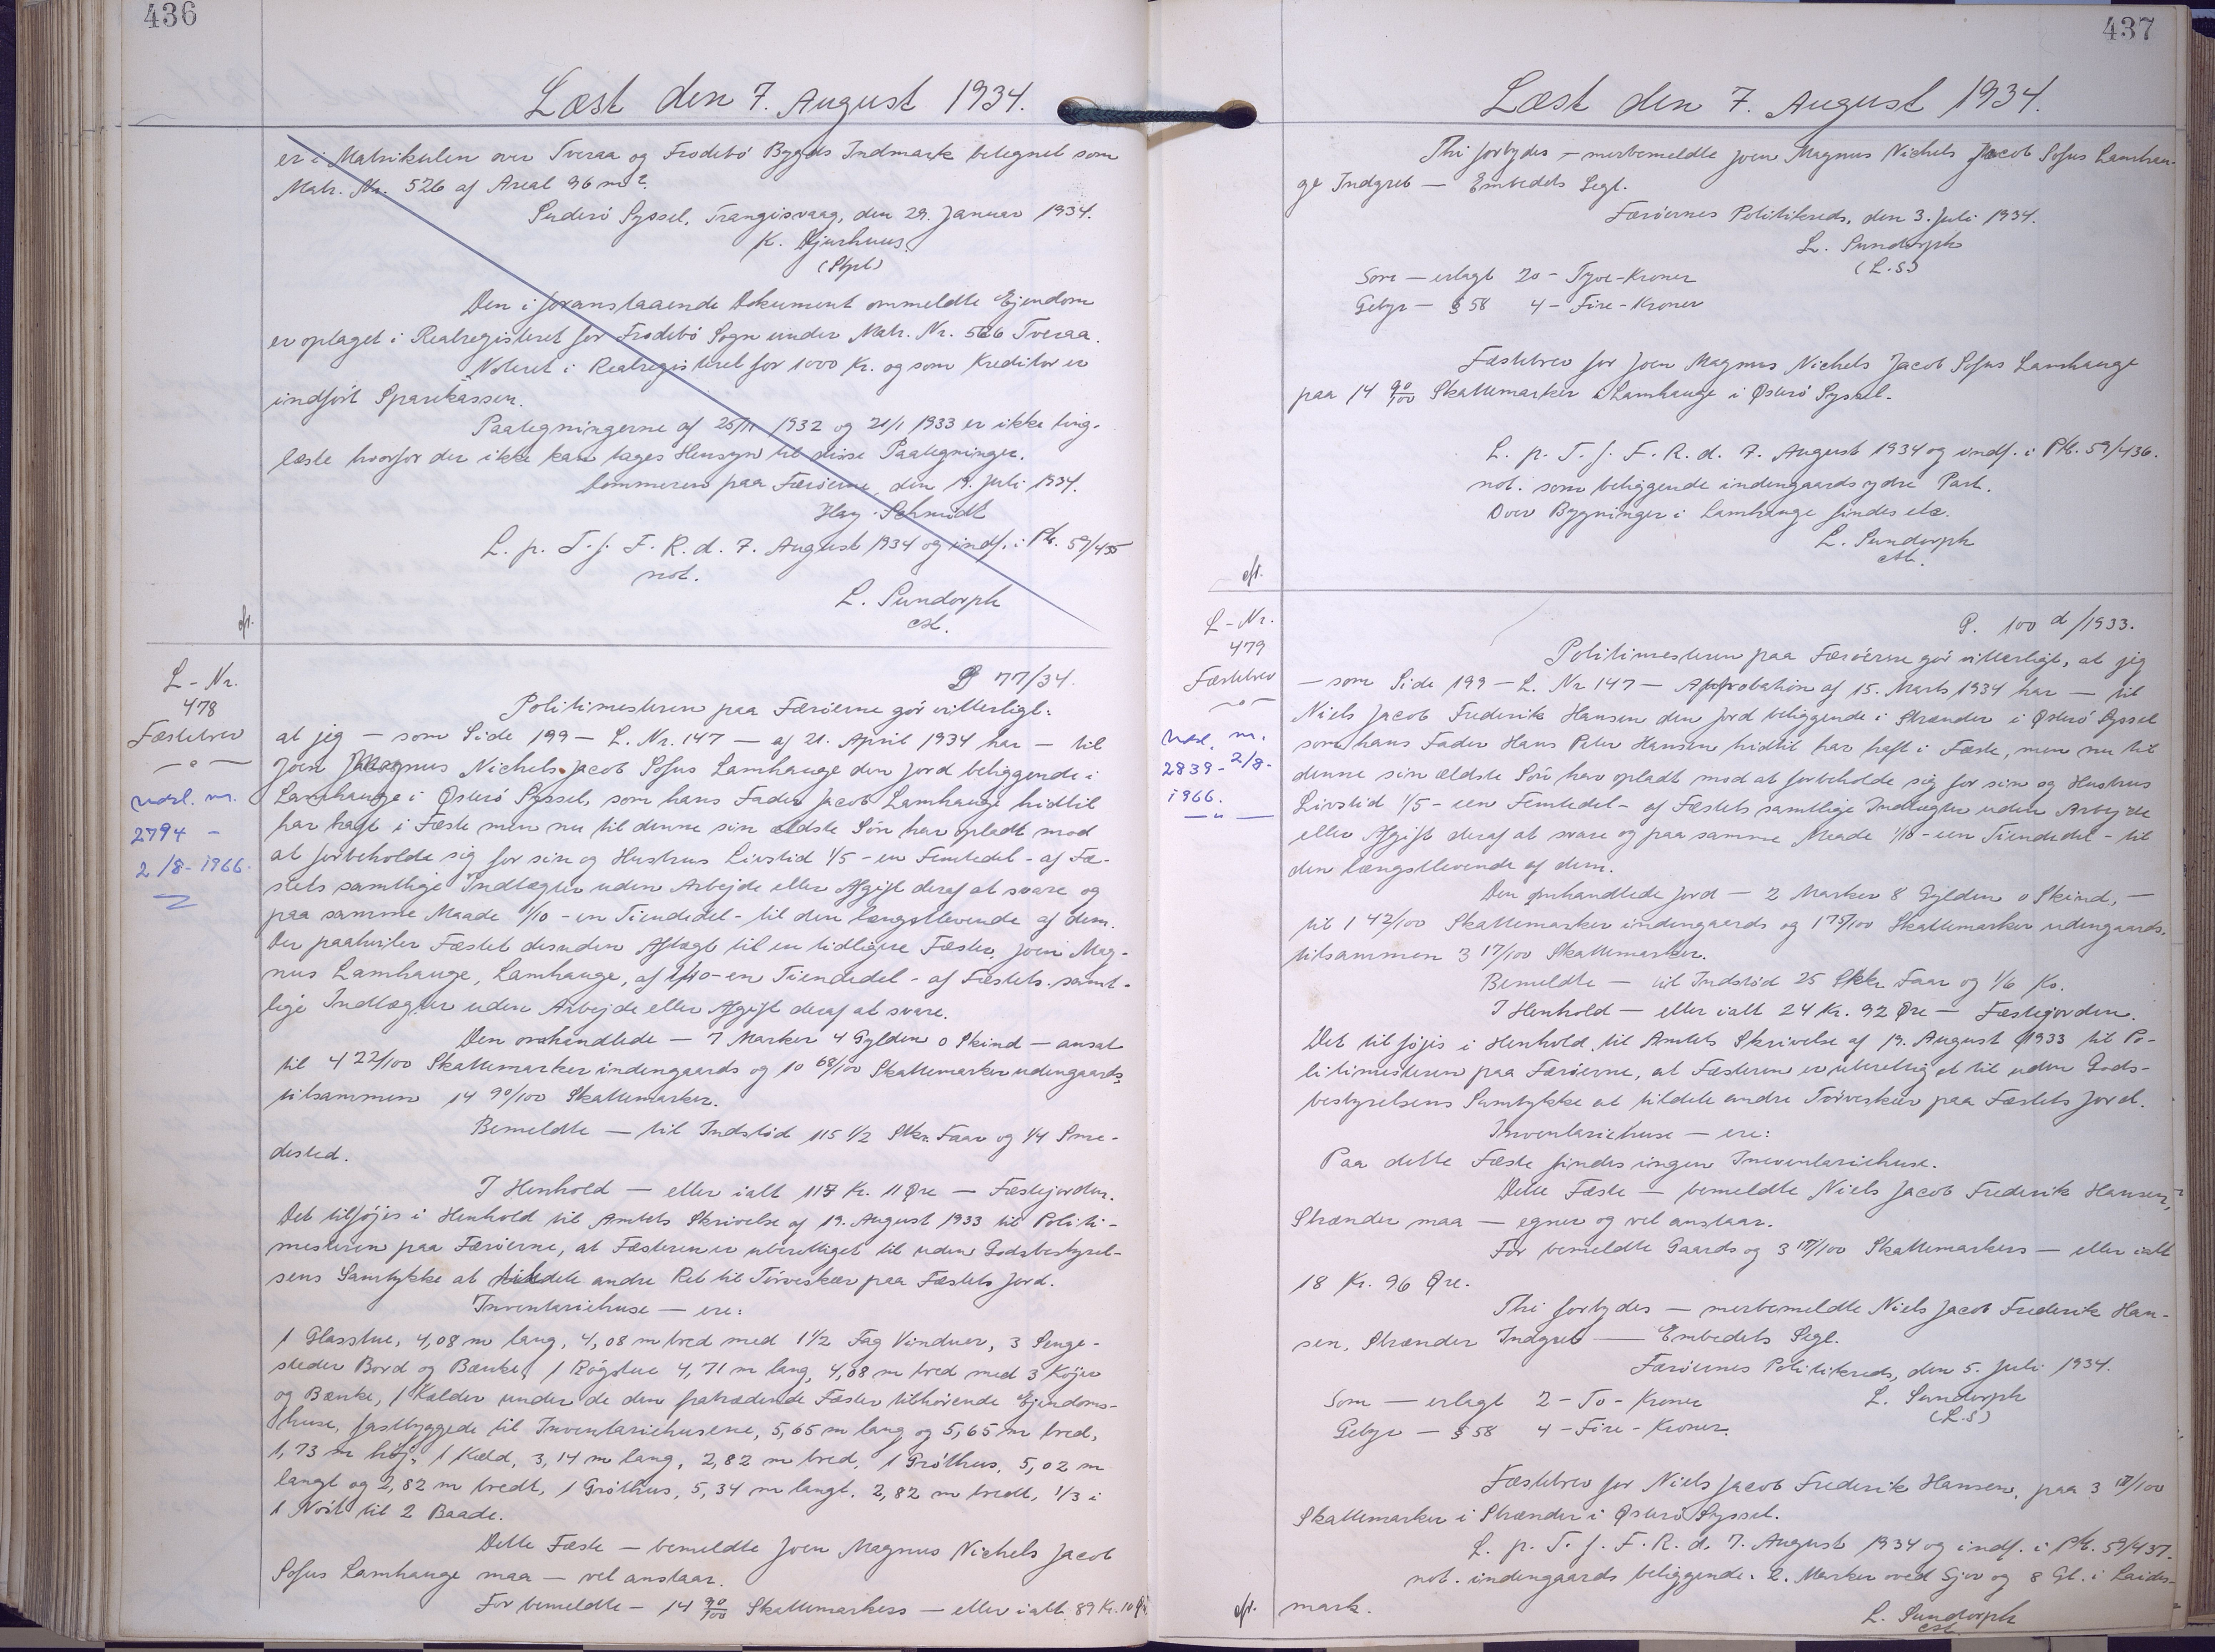 436
Læst den 7. August 1934.
er i Matrikulen over Tveraa og Frodebö Bygds Indmark betegnet som
Matr. Nr. 526 af Areal 96 m2.
Suderö Syssel, Trangisvaag, den 29. Januar 1934.
K. Djurhuus.
(Stpl)
Den i foranstaaende Dokument ommeldte Ejendom
er optaget i Realregisteret for Frodebö Sogn under Matr. Nr. 526 Tveraa.
Noteret i Realregisteret for 1000 Kr. og som Kreditor er
indfört Sparekassen.
Paategningerne af 25/11 1932 og 21/1 1933 er ikke ting-
læste hvorfor der ikke kan tages Hensyn til disse Paategninger.
Dommeren paa Færöerne, den 19. Juli 1934.
Hay-Schmidt
L. p. T. f. F. R. d. 7. August 1934 og indf. i Ptk. 59/435
not.
L. Sundorph
cst.
cfr.
L-Nr.
478
Fæstebrev
Udsl. m.
2794 -
2/8-1966.
P 77/34.
Politimesteren paa Færöerne gör vitterligt:
at jeg — som Side 199 - L. Nr. 147 — af 21. April 1934 har — til
Joen Magnus Nichels Jacob Sofus Lamhauge den Jord beliggende i
Lamhauge i Østerö Syssel, som hans Fader Jacob Lamhauge hidtil
har haft i Fæste men nu til denne sin ældste Sön har opladt mod
at forbeholde sig for sin og Hustrus Livstid 1/5 - en Femtedel - af Fæ-
stets samtlige Indtægter uden Arbejde eller Afgift deraf at svare og
paa samme Maade 1/10 - en Tiendedel - til den længstlevende af dem.
Der paahviler Fæstet desuden Aftægt til en tidligere Fæster, Joen Mag-
nus Lamhauge, Lamhauge, af 1/10 - en Tiendedel - af Fæstets samt-
lige Indtægter uden Arbejde eller Afgift deraf at svare.
Den omhandlede — 7 Marker 4 Gylden 0 Skind — ansat
til 4 22/100 Skattemarker indengaards og 10 68/100 Skattemarker udengaards,
tilsammen 14 90/100 Skattemarker.
Bemeldte — til Indstöd 115 1/2 Stkr. Faar og 1/4 Sme-
dested.
I Henhold — eller ialt 117 Kr. 11 Øre — Fæstejorden.
Det tilföjes i Henhold til Amtets Skrivelse af 19. August 1933 til Politi-
mesteren paa Færöerne, at Fæsteren er uberettiget til uden Godsbestyrel-
sens Samtykke at tildele andre Ret til Törveskær paa Fæstets Jord.
Inventariehuse — ere:
1 Glasstue, 4,08 m lang, 4,08 m bred med 1 1/2 Fag Vinduer, 3 Senge-
steder Bord og Bænke, 1 Rögstue 4,71 m lang, 4,08 m bred med 3 Köjer
og Bænke, 1 Kælder under de den fratrædende Fæster tilhörende Ejendoms-
huse, fastbyggede til Inventariehusene, 5,65 m lang og 5,65 m bred,
1,73 m höj, 1 Kæld, 3,14 m lang, 2,82 m bred, 1 Gröthus, 5,02 m
langt og 2,82 m bredt, 1 Gröthus, 5,34 m langt, 2,82 m bredt, 1/3 i
1 Nöst til 2 Baade.
Dette Fæste — bemeldte Joen Magnus Nichels Jacob
Sofus Lamhauge maa — vel anstaar.
For bemeldte - 14 90/100 Skattemarkers — eller ialt 89 Kr. 10 Øre
437
Læst den 7. August 1934.
Thi forbydes — merbemeldte Joen Magnus Nichels Jacob Sofus Lamhau-
ge Indgreb — Embedets Segl.
Færöernes Politikreds, den 3. Juli 1934.
L. Sundorph
(L.S)
Som — erlagt 20 - Tyve - Kroner
Gebyr — § 58 4 - Fire - Kroner
Fæstebrev for Joen Magnus Nichels Jacob Sofus Lamhauge
paa 14 90/100 Skattemarker i Lamhauge i Østerö Syssel.
L. p. T. f. F. R. d. 7. August 1934 og indf. i Ptk. 59/436.
not. som beliggende indengaards ydre Part.
Over Bygninger i Lamhauge findes etc.
L. Sundorph
cst.
cfr.
L-Nr.
479
Fæstebrev
Udsl. m.
2839 - 2/8-
1966.
P. 100 d/1933.
Politimesteren paa Færöerne gör vitterligt, at jeg
— som Side 199 - L. Nr 147 — Approbation af 15. Marts 1934 har — til
Niels Jacob Frederik Hansen den Jord beliggende i Strænder i Østerö Syssel
som hans Fader Hans Peter Hansen hidtil har haft i Fæste, men nu til
denne sin ældste Sön har opladt mod at forbeholde sig for sin og Hustrus
Livstid 1/5 - een Femtedel - af Fæstets samtlige Indtægter uden Arbejde
eller Afgift deraf at svare og paa samme Maade 1/10 - een Tiendedel - til
den længstlevende af dem.
Den omhandlede Jord — 2 Marker 8 Gylden 0 Skind, —
til 1 42/100 Skattemarker indengaards og 1 75/100 Skattemarker udengaards,
tilsammen 3 17/100 Skattemarker.
Bemeldte — til Indstöd 25 Stkr Faar og 1/6 Ko.
I Henhold — eller ialt 24 Kr. 92 Øre — Fæstejorden.
Det tilföjes i Henhold til Amtets Skrivelse af 19. August 1933 til Po-
litimesteren paa Færöerne, at Fæsteren er uberettiget til uden Gods-
bestyrelsens Samtykke at tildele andre Törveskær paa Fæstets Jord.
Inventariehuse — ere:
Paa dette Fæste findes ingen Inventariehuse.
Dette Fæste — bemeldte Niels Jacob Frederik Hansen,
Strænder maa — egner og vel anstaar.
For bemeldte Gaards og 3 17/100 Skattemarkers — eller ialt
18 Kr. 96 Øre.
Thi forbydes — merbemeldte Niels Jacob Frederik Han-
sen, Strænder Indgreb — Embedets Segl.
Færöernes Politikreds, den 5. Juli 1934.
L. Sundorph
(L.S)
Som — erlagt 2 - To - Kroner
Gebyr — § 58 4 - Fire - Kroner.
Fæstebrev for Niels Jacob Frederik Hansen, paa 3 17/100
Skattemarker i Strænder i Østerö Syssel.
L. p. T. f. F. R. d. 7. August 1934 og indf. i Ptk. 59/437.
not. indengaards beliggende: 2. Marker oved Gjov og 8 Gl. i Laides-
mark.
L. Sundorph
cst.
cfr.